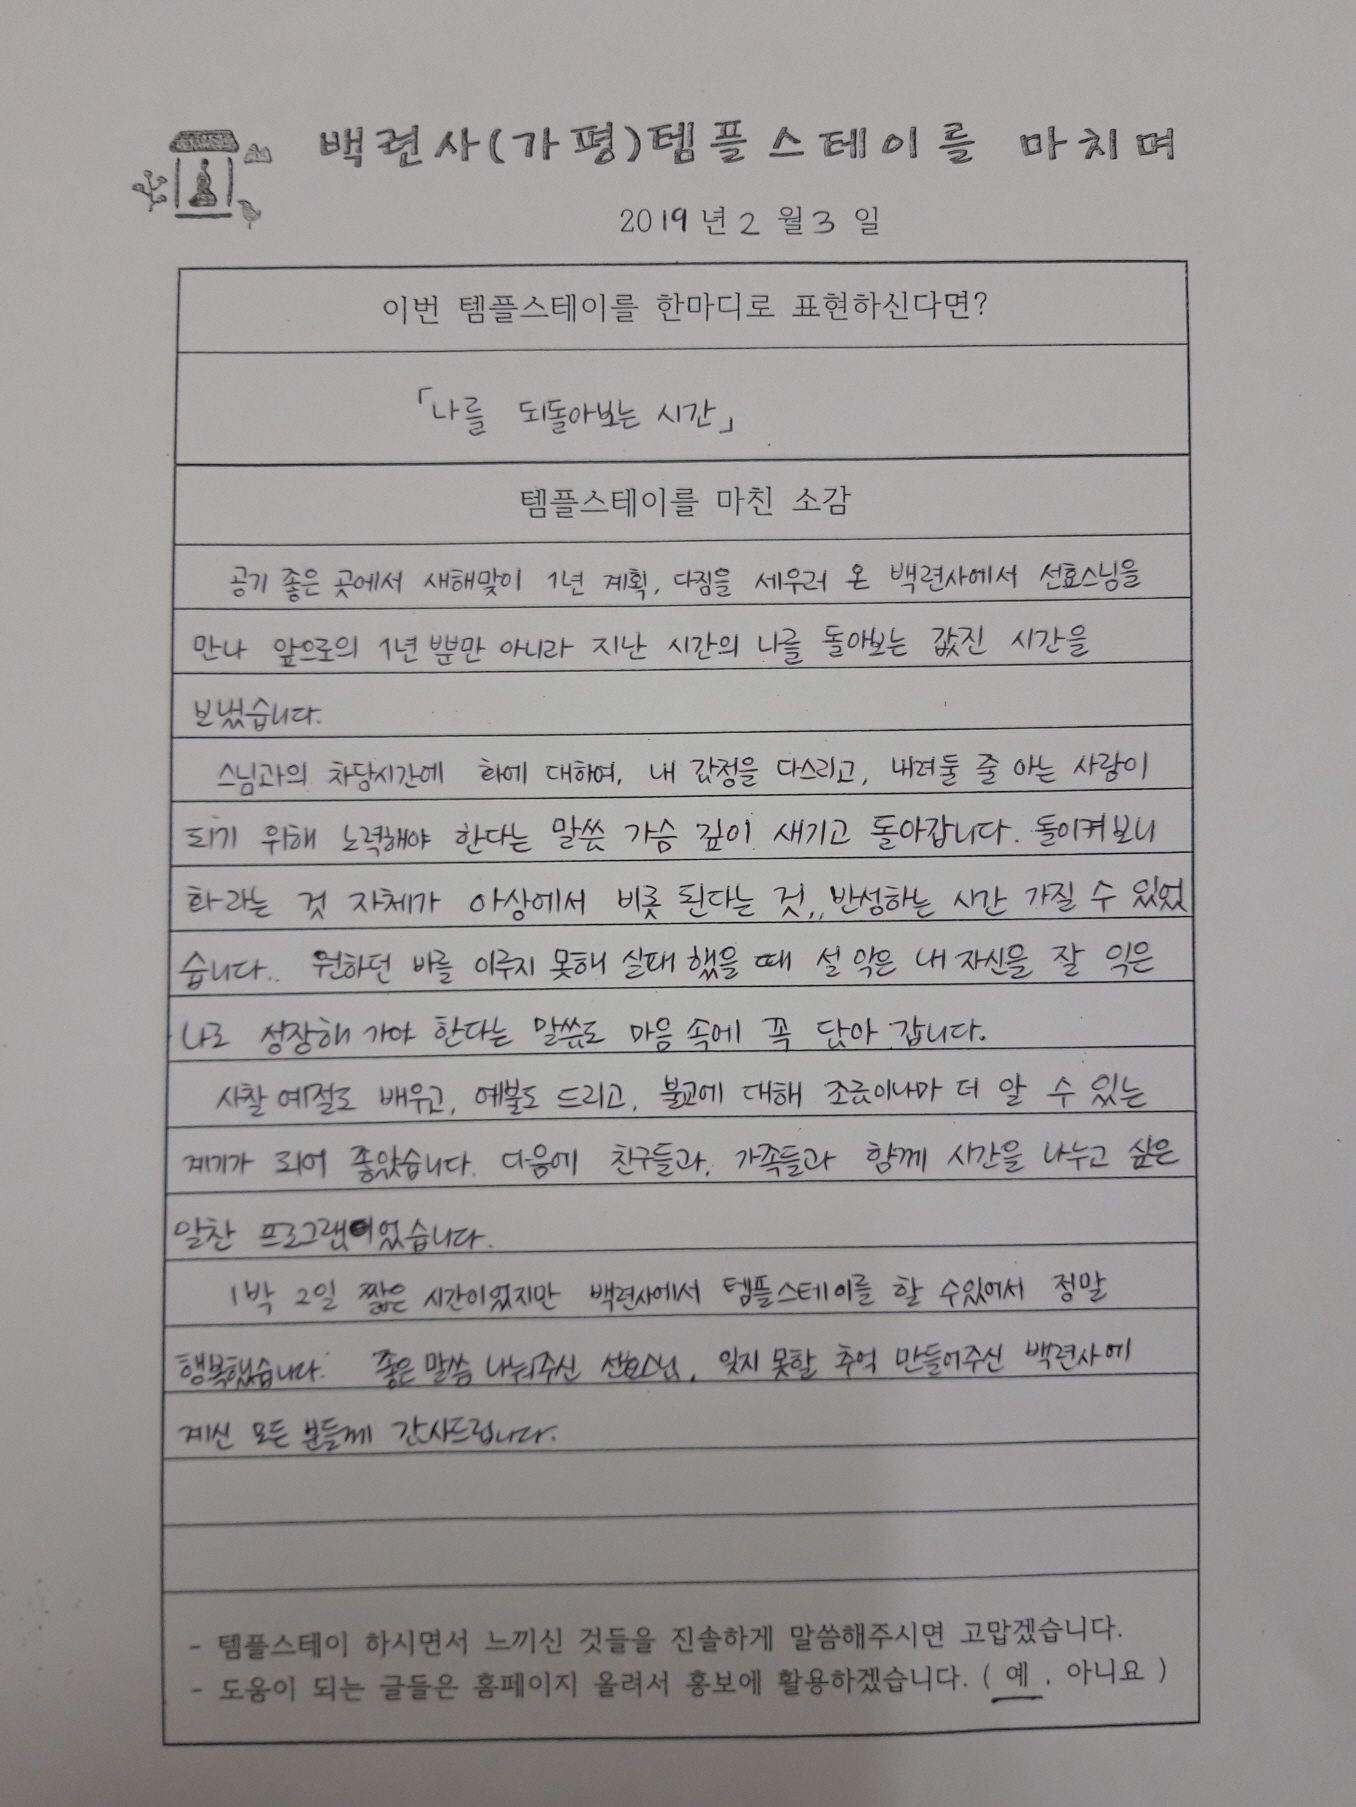 백련사(가평)템플스테이를 마치며
2019년 2월 3일
이번 템플스테이를 한마디로 표현하신다면?
「나를 되돌아보는 시간」
템플스테이를 마친 소감
공기 좋은 곳에서 새해맞이 1년 계획, 다짐을 세우러 온 백련사에서 선효스님을
만나 앞으로의 1년 뿐만 아니라 지난 시간의 나를 돌아보는 값진 시간을
보냈습니다.
스님과의 차담시간에 화에 대하여, 내 감정을 다스리고, 내려둘 줄 아는 사람이
되기 위해 노력해야 한다는 말씀 가슴 깊이 새기고 돌아갑니다. 돌이켜보니
화라는 것 자체가 아상에서 비롯 된다는 것,, 반성하는 시간 가질 수 있었
습니다.. 원하던 바를 이루지 못해 실패 했을 때 설 익은 내 자신을 잘 익은
나로 성장해 가야 한다는 말씀도 마음 속에 꼭 담아 갑니다.
사찰 예절도 배우고, 예불도 드리고, 불교에 대해 조금이나마 더 알 수 있는
계기가 되어 좋았습니다. 다음에 친구들과, 가족들과 함께 시간을 나누고 싶은
알찬 프로그램이었습니다.
1박 2일 짧은 시간이었지만 백련사에서 템플스테이를 할 수있어서 정말
행복했습니다. 좋은 말씀 나눠주신 선효스님, 잊지 못할 추억 만들어주신 백련사에
계신 모든 분들께 감사드립니다.
- 템플스테이 하시면서 느끼신 것들을 진솔하게 말씀해주시면 고맙겠습니다.
- 도움이 되는 글들은 홈페이지 올려서 홍보에 활용하겠습니다. ( 예 , 아니요 )